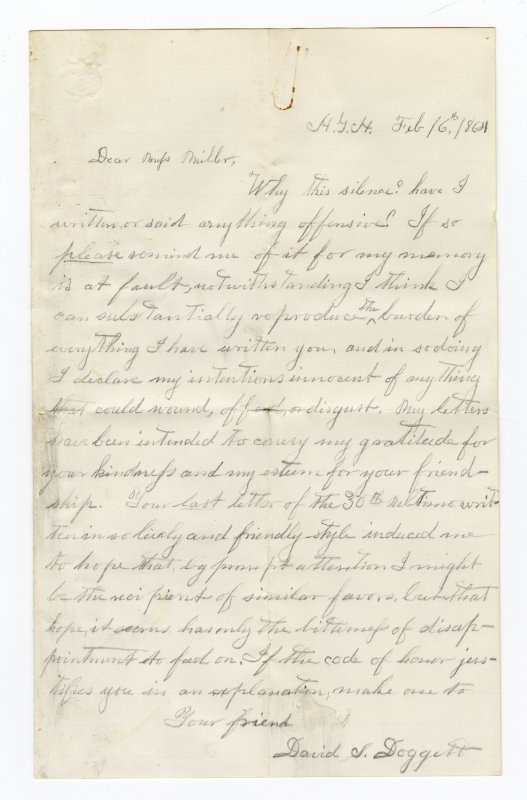 A.G.H. Feb 16th, 1864
Dear Miss Miller,
Why this silence? have I
written or said anything offensive? If so
please remind me of it for my memory
is at fault, notwithstanding I think I
can substantially reproduce the burden of
everything I have written you, and in so doing
I declare my intentions innocent of anything
that could wound, offend, or disgust. My letters
have been intended to convey my gratitude for
your kindness and my esteem for your friend-
ship. Your last letter of the 30th ultimo writ-
ten in so lively and friendly style induced me
to hope that, by prompt attention I might
be the recipient of similar favors, but that
hope, it seems, has only the bitterness of disap-
pointment to feed on. If the code of honor jus-
tifies you in an explanation, make one to
Your friend
David S. Doggett